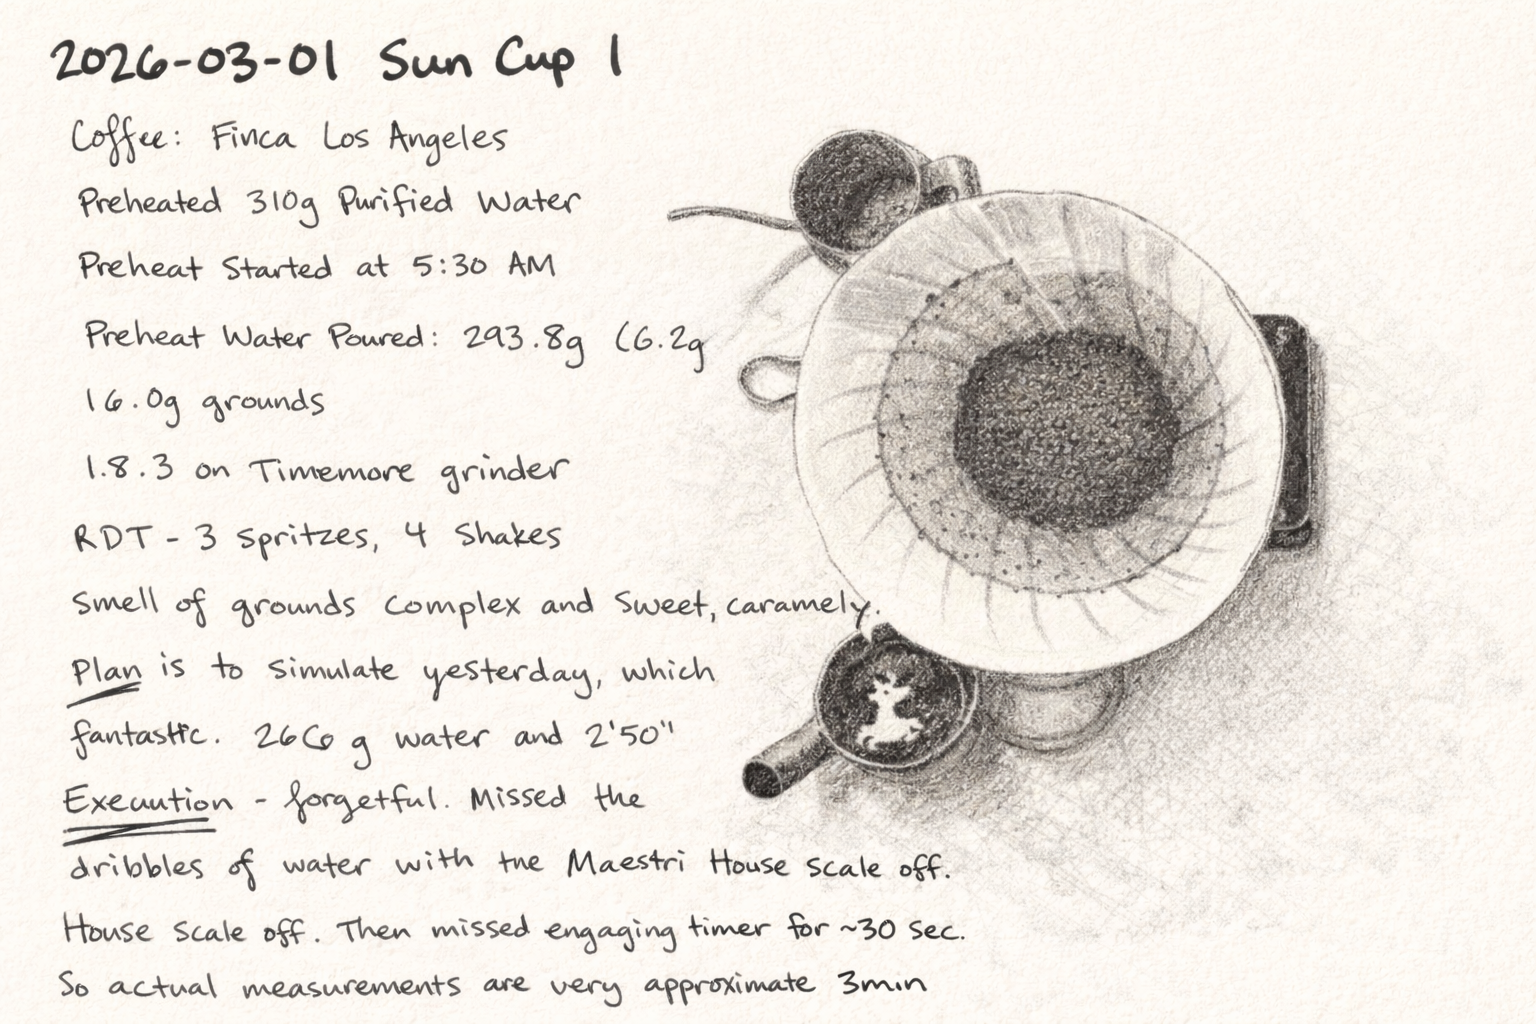 2026-03-01 Sun Cup 1
Coffee: Finca Los Angeles
Preheated 310g Purified Water
Preheat Started at 5:30 AM
Preheat Water Poured: 293.8g (6.2g
16.0g grounds
1.8.3 on Timemore grinder
RDT - 3 spritzes, 4 Shakes
Smell of grounds complex and sweet, caramely.
Plan is to simulate yesterday, which
fantastic. 266 g water and 2'50"
Execution - forgetful. Missed the
dribbles of water with the Maestri House scale off.
House scale off. Then missed engaging timer for ~30 sec.
So actual measurements are very approximate 3min